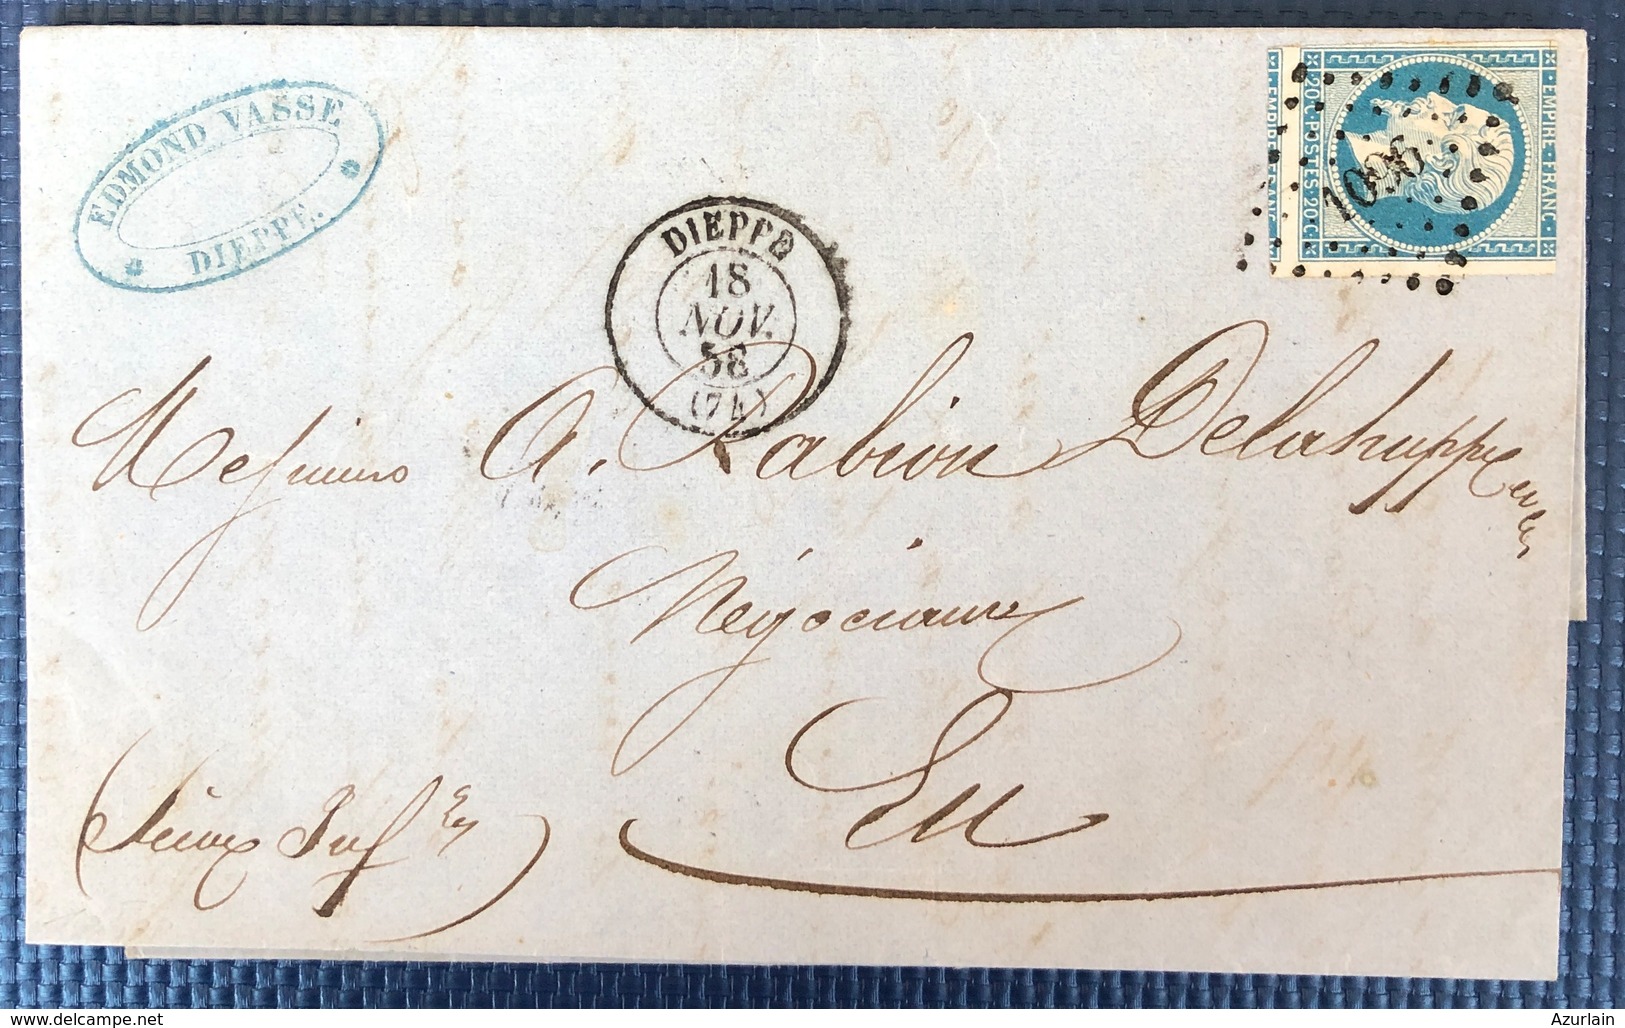 EDMOND VASSE
DIEPPE.
DIEPPE
18
NOV.
58
(74)
EMPIRE FRANC
20 C POSTES 20 C
EMPIRE FRANC
1096
Messieurs A. Rabion Delahuppe
Négociants
Eu
(Seine Infre)
delcampe.net
Azurlain